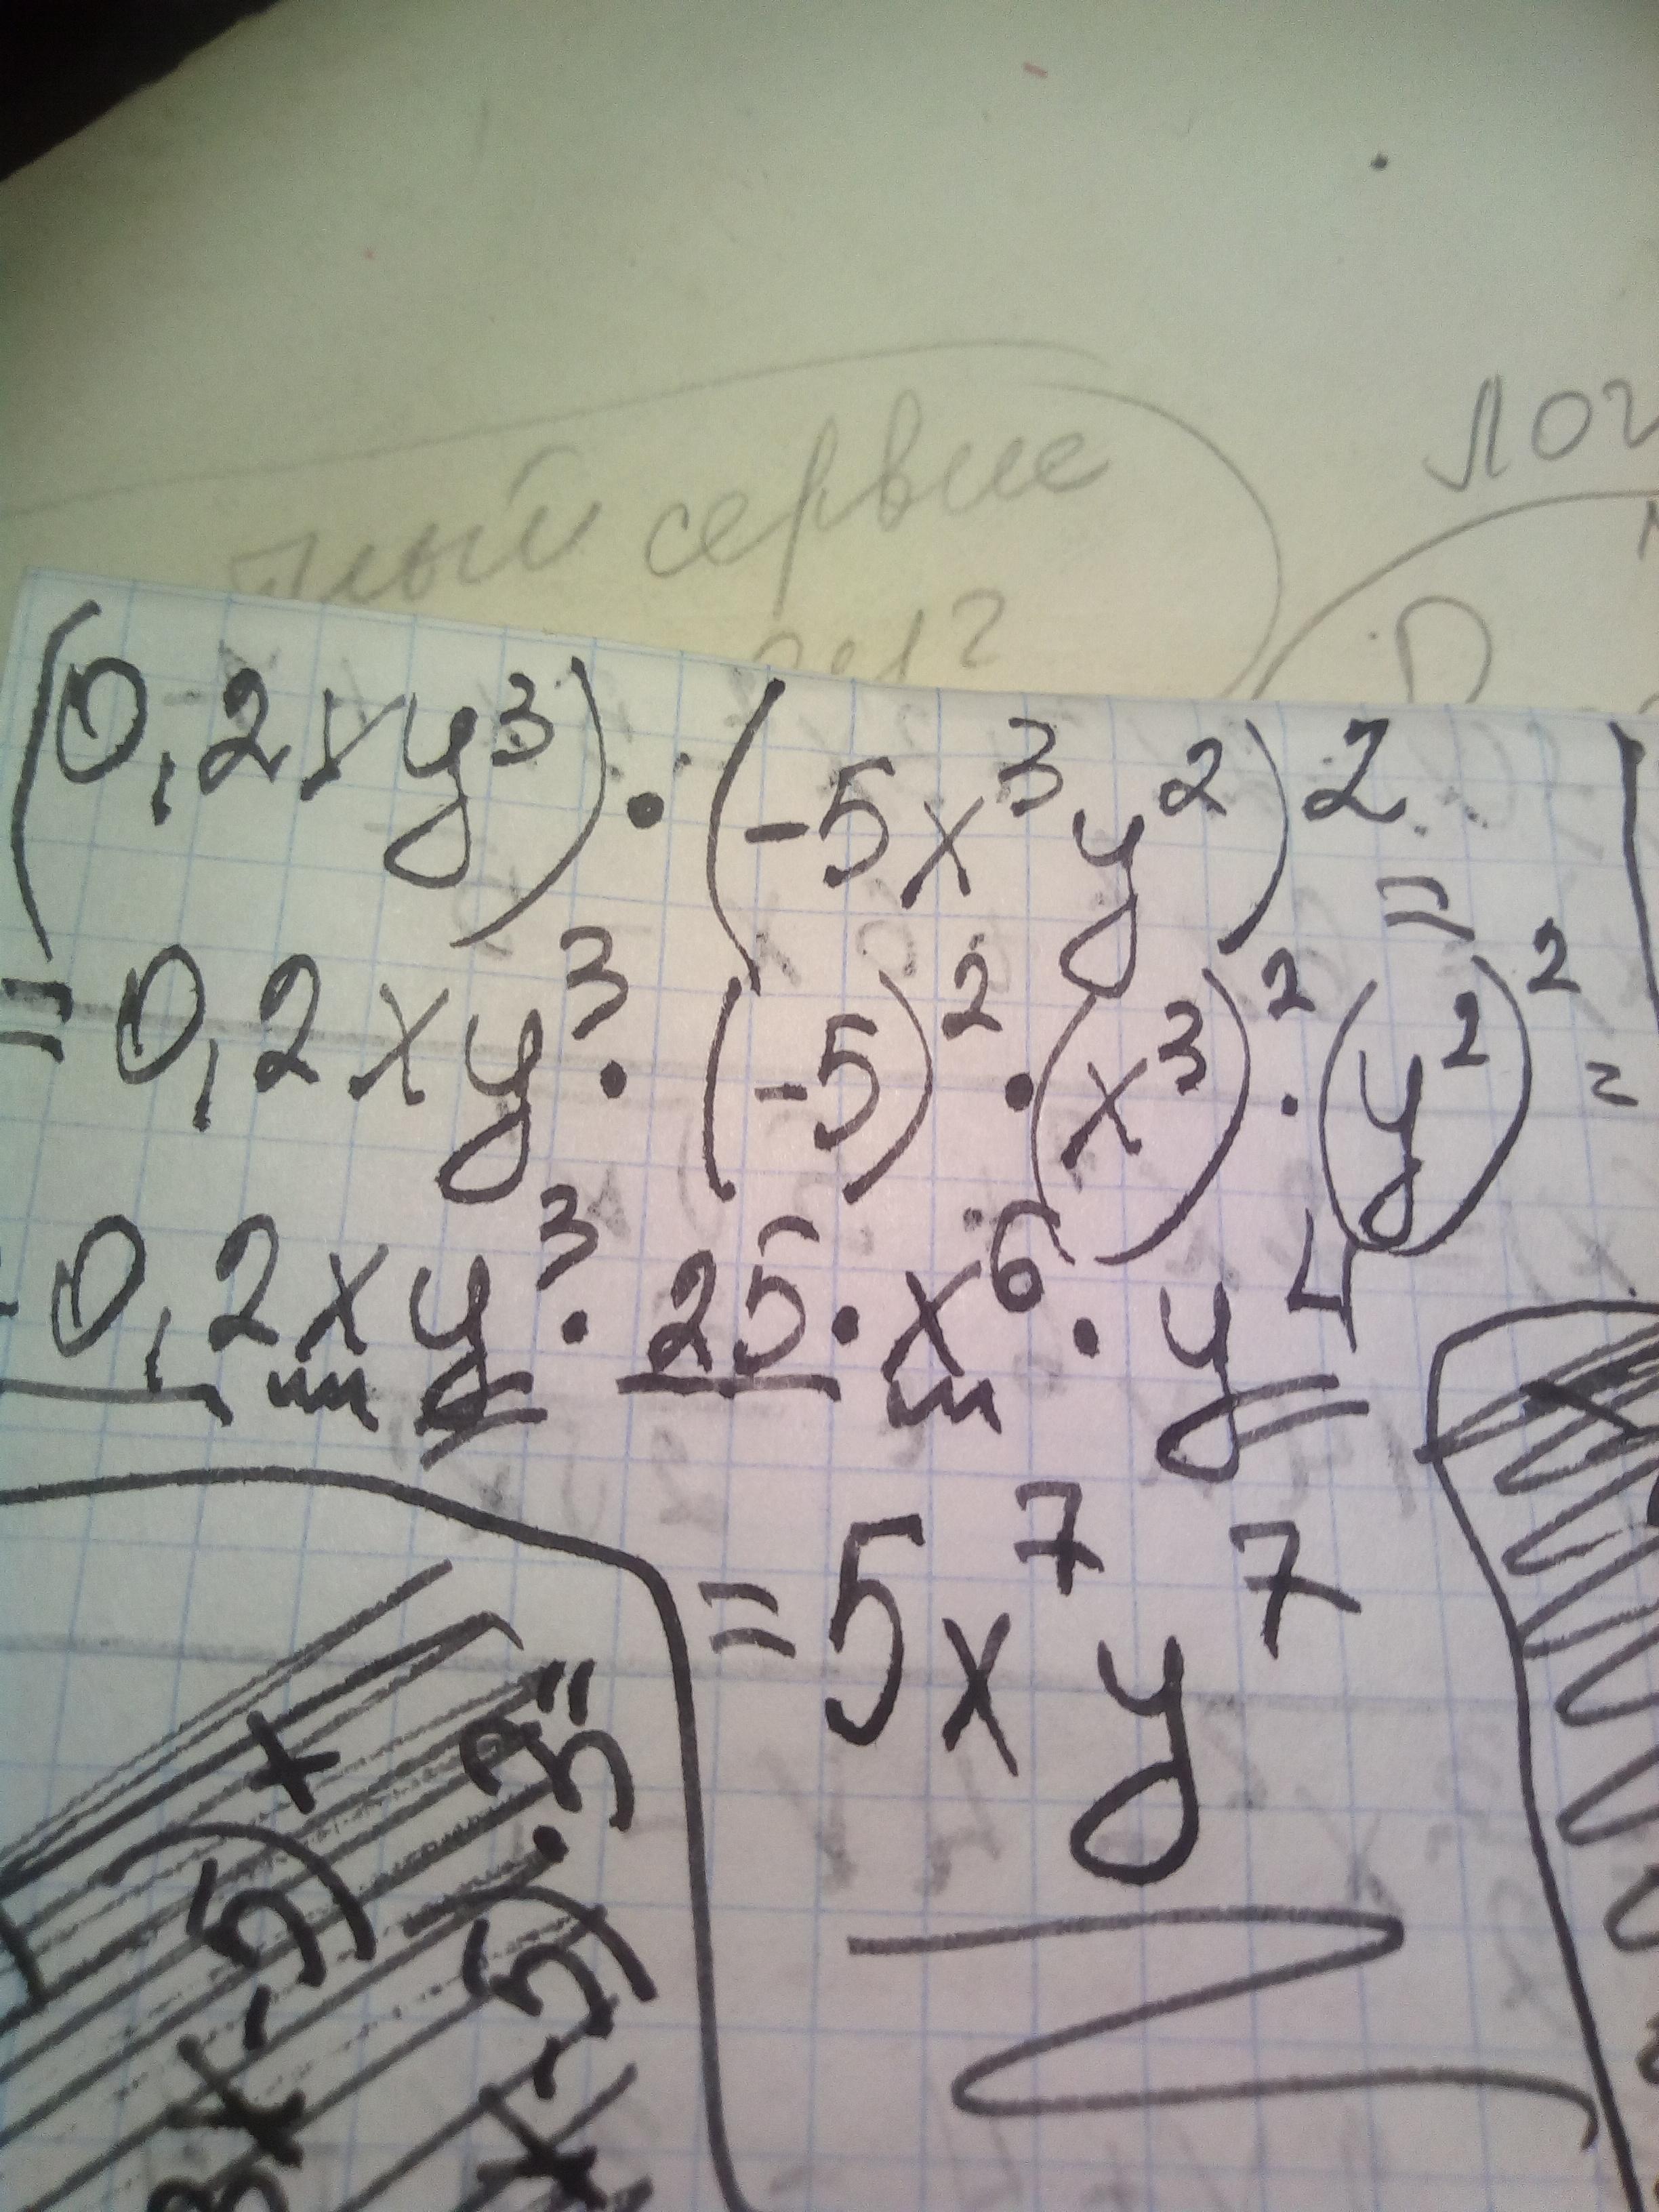 сервис
(0,2xy³)·(-5x³y²)² =
= 0,2xy³·(-5)²·(x³)²·(y²)² =
= 0,2xy³·25·x⁶·y⁴
= 5x⁷y⁷